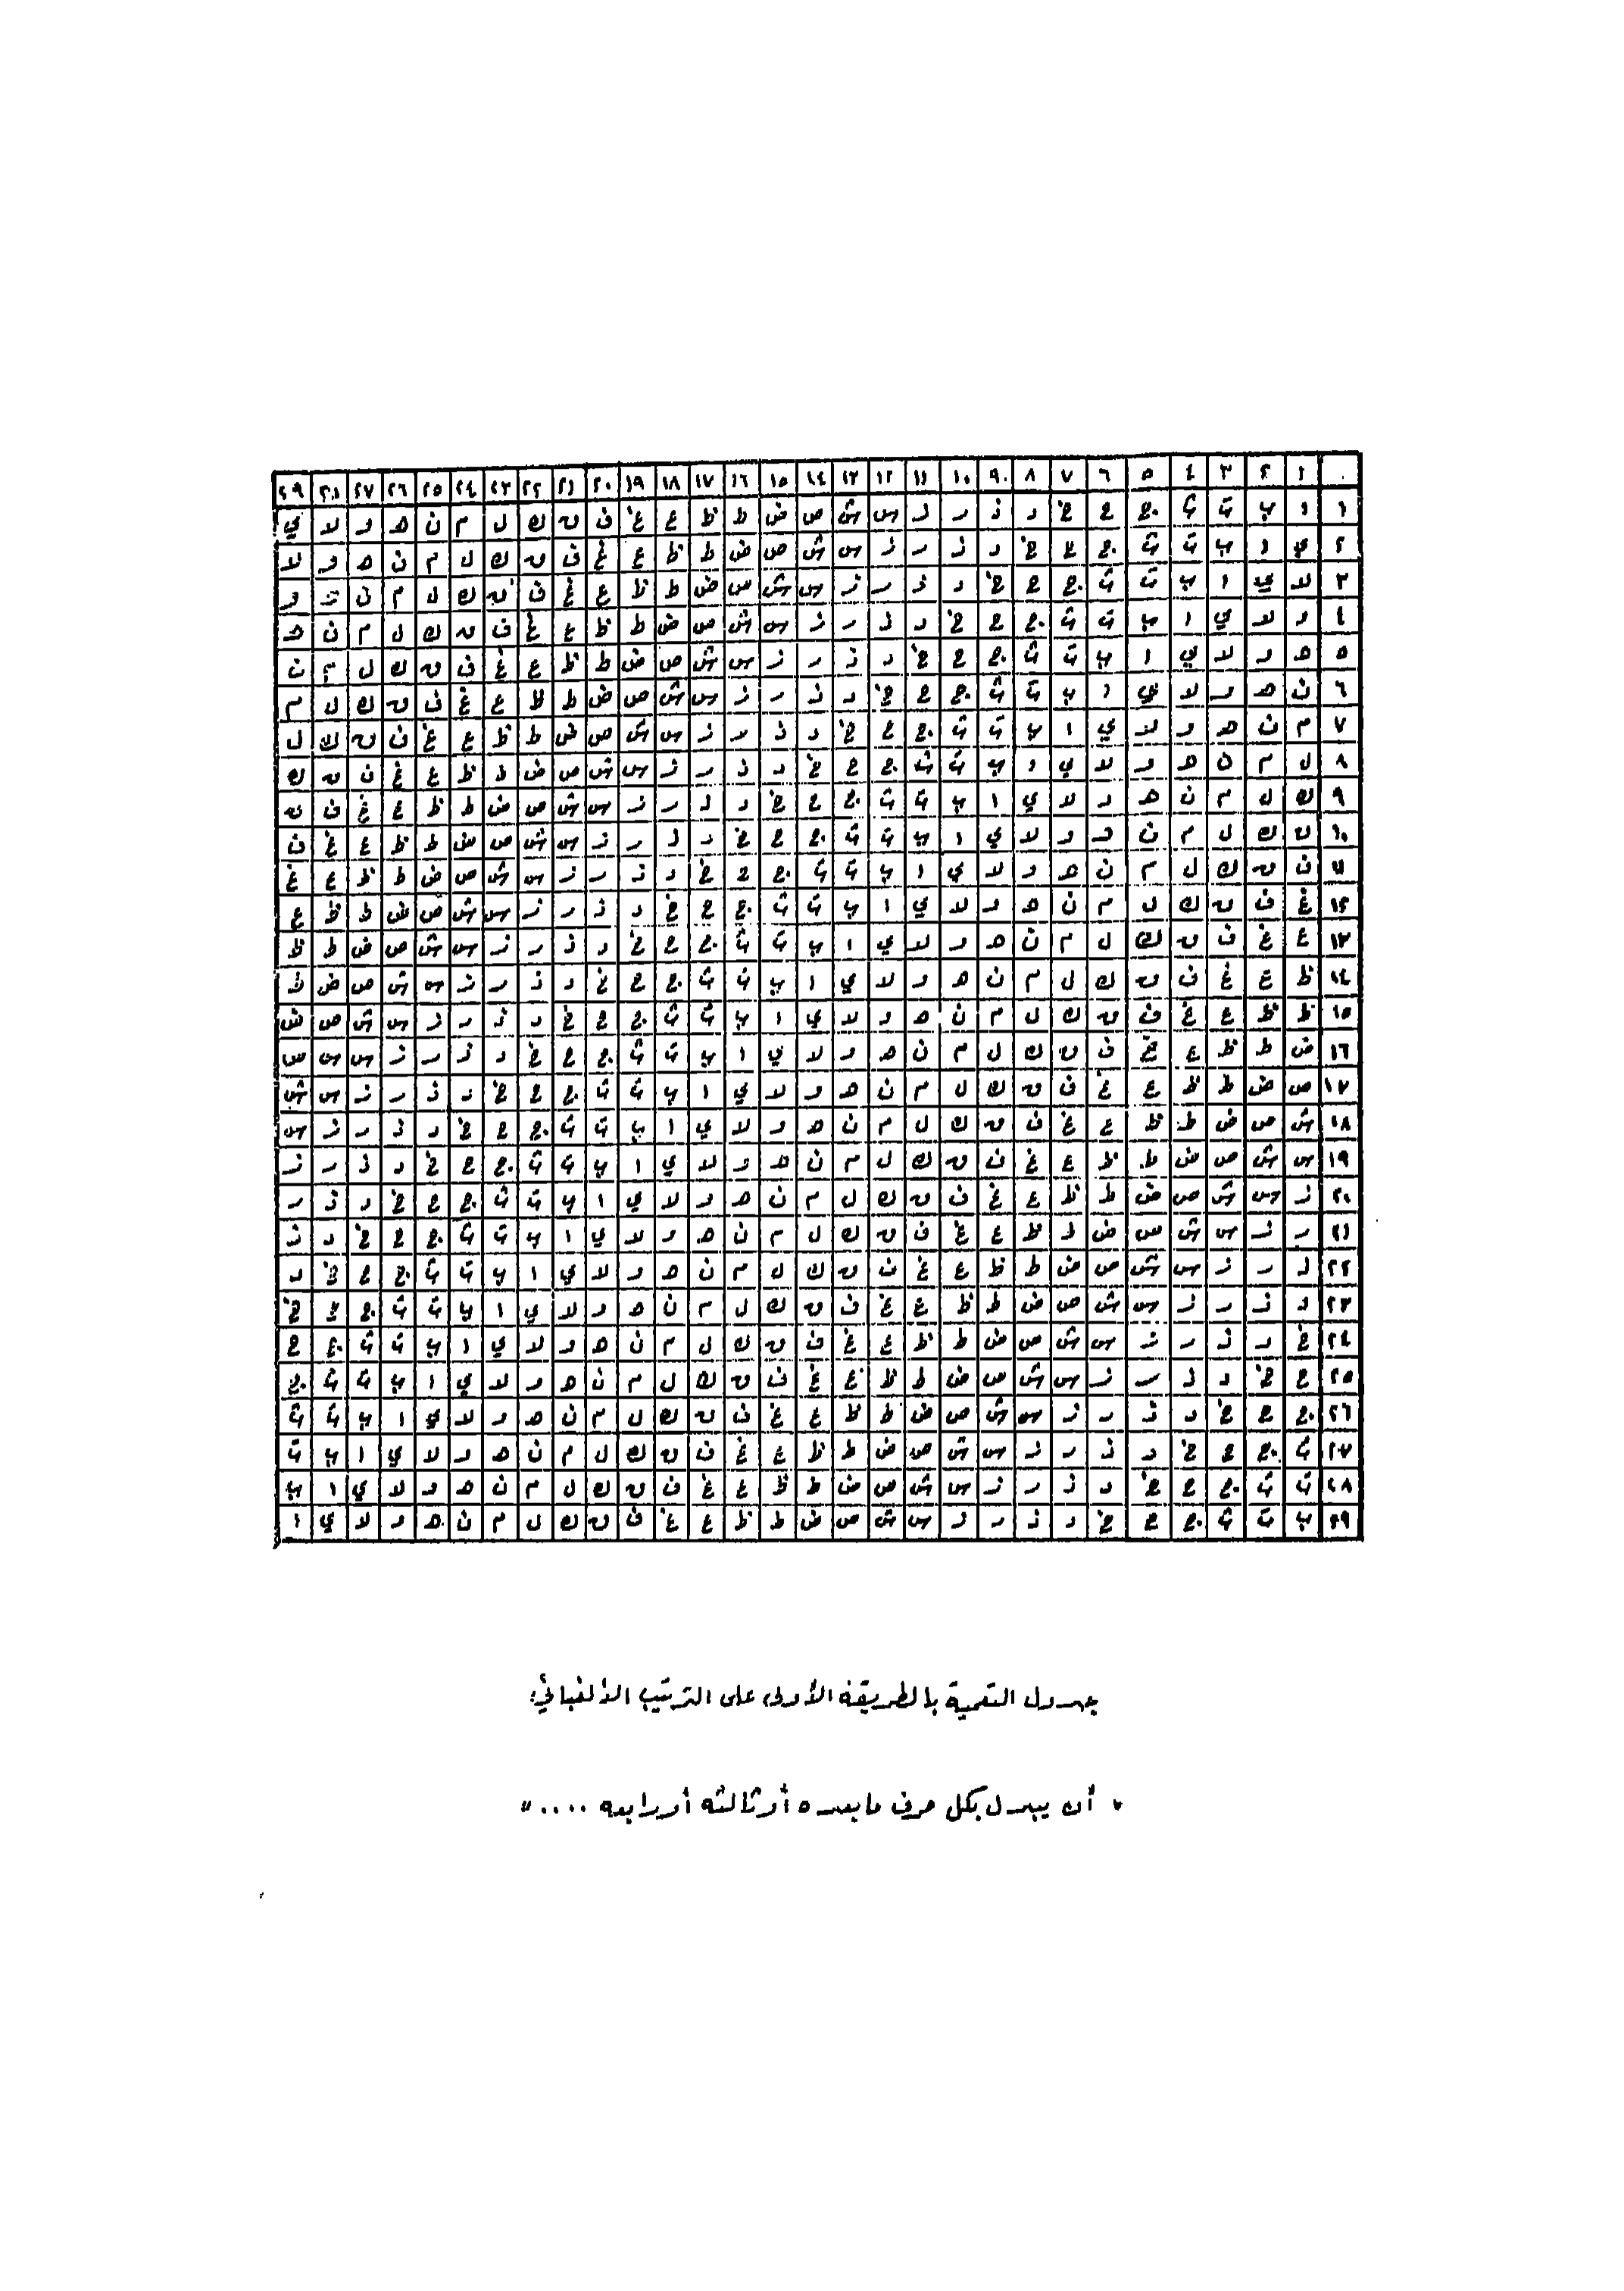 ٠ ١ ٢ ٣ ٤ ٥ ٦ ٧ ٨ ٩ ١٠ ١١ ١٢ ١٣ ١٤ ١٥ ١٦ ١٧ ١٨ ١٩ ٢٠ ٢١ ٢٢ ٢٣ ٢٤ ٢٥ ٢٦ ٢٧ ٢٨ ٢٩
١ ا ب ت ث ج ح خ د ذ ر ز س ش ص ض ط ظ ع غ ف ق ك ل م ن ه و لا ي
٢ ي ا ب ت ث ج ح خ د ذ ر ز س ش ص ض ط ظ ع غ ف ق ك ل م ن ه و لا
٣ لا ي ا ب ت ث ج ح خ د ذ ر ز س ش ص ض ط ظ ع غ ف ق ك ل م ن ه و
٤ و لا ي ا ب ت ث ج ح خ د ذ ر ز س ش ص ض ط ظ ع غ ف ق ك ل م ن ه
٥ ه و لا ي ا ب ت ث ج ح خ د ذ ر ز س ش ص ض ط ظ ع غ ف ق ك ل م ن
٦ ن ه و لا ي ا ب ت ث ج ح خ د ذ ر ز س ش ص ض ط ظ ع غ ف ق ك ل م
٧ م ن ه و لا ي ا ب ت ث ج ح خ د ذ ر ز س ش ص ض ط ظ ع غ ف ق ك ل
٨ ل م ن ه و لا ي ا ب ت ث ج ح خ د ذ ر ز س ش ص ض ط ظ ع غ ف ق ك
٩ ك ل م ن ه و لا ي ا ب ت ث ج ح خ د ذ ر ز س ش ص ض ط ظ ع غ ف ق
١٠ ق ك ل م ن ه و لا ي ا ب ت ث ج ح خ د ذ ر ز س ش ص ض ط ظ ع غ ف
١١ ف ق ك ل م ن ه و لا ي ا ب ت ث ج ح خ د ذ ر ز س ش ص ض ط ظ ع غ
١٢ غ ف ق ك ل م ن ه و لا ي ا ب ت ث ج ح خ د ذ ر ز س ش ص ض ط ظ ع
١٣ ع غ ف ق ك ل م ن ه و لا ي ا ب ت ث ج ح خ د ذ ر ز س ش ص ض ط ظ
١٤ ظ ع غ ف ق ك ل م ن ه و لا ي ا ب ت ث ج ح خ د ذ ر ز س ش ص ض ط
١٥ ط ظ ع غ ف ق ك ل م ن ه و لا ي ا ب ت ث ج ح خ د ذ ر ز س ش ص ض
١٦ ض ط ظ ع غ ف ق ك ل م ن ه و لا ي ا ب ت ث ج ح خ د ذ ر ز س ش ص
١٧ ص ض ط ظ ع غ ف ق ك ل م ن ه و لا ي ا ب ت ث ج ح خ د ذ ر ز س ش
١٨ ش ص ض ط ظ ع غ ف ق ك ل م ن ه و لا ي ا ب ت ث ج ح خ د ذ ر ز س
١٩ س ش ص ض ط ظ ع غ ف ق ك ل م ن ه و لا ي ا ب ت ث ج ح خ د ذ ر ز
٢٠ ز س ش ص ض ط ظ ع غ ف ق ك ل م ن ه و لا ي ا ب ت ث ج ح خ د ذ ر
٢١ ر ز س ش ص ض ط ظ ع غ ف ق ك ل م ن ه و لا ي ا ب ت ث ج ح خ د ذ
٢٢ ذ ر ز س ش ص ض ط ظ ع غ ف ق ك ل م ن ه و لا ي ا ب ت ث ج ح خ د
٢٣ د ذ ر ز س ش ص ض ط ظ ع غ ف ق ك ل م ن ه و لا ي ا ب ت ث ج ح خ
٢٤ خ د ذ ر ز س ش ص ض ط ظ ع غ ف ق ك ل م ن ه و لا ي ا ب ت ث ج ح
٢٥ ح خ د ذ ر ز س ش ص ض ط ظ ع غ ف ق ك ل م ن ه و لا ي ا ب ت ث ج
٢٦ ج ح خ د ذ ر ز س ش ص ض ط ظ ع غ ف ق ك ل م ن ه و لا ي ا ب ت ث
٢٧ ث ج ح خ د ذ ر ز س ش ص ض ط ظ ع غ ف ق ك ل م ن ه و لا ي ا ب ت
٢٨ ت ث ج ح خ د ذ ر ز س ش ص ض ط ظ ع غ ف ق ك ل م ن ه و لا ي ا ب
٢٩ ب ت ث ج ح خ د ذ ر ز س ش ص ض ط ظ ع غ ف ق ك ل م ن ه و لا ي ا
جدول التعمية بالطريقة الأولى على الترتيب الألفبائي:
" أن يبدل بكل حرف ما بعده أو ثالثه أو رابعه .... "